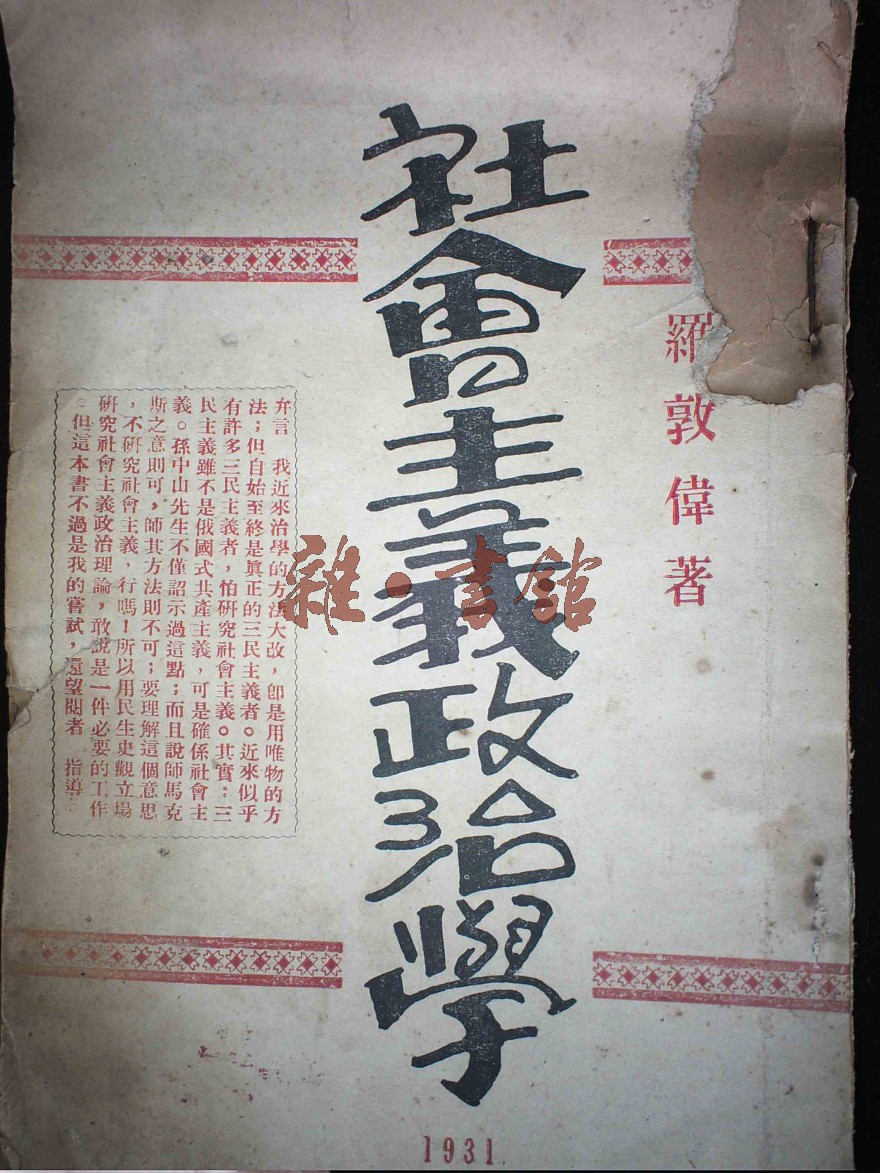 羅敦偉著
社會主義政治學
弁言　我近來治學的方法大改，卽是用唯物的方
法；但自始至終是眞正的三民主義者。近來似乎
有許多三民主義者，怕硏究社會主義。其實：三
民主義雖不是俄國式共產主義，可是確係社會主
義。孫中山先生不僅詔示過這點；而且說師馬克
斯之意則可，師其方法則不可；要理解這個意思
，不硏究社會主義，行嗎！所以用民生史觀立場
硏究社會主義政治理論，敢說是一件必要的工作
。但這本書不過是我的嘗試，還望閱者　指導
1931
雜·書館